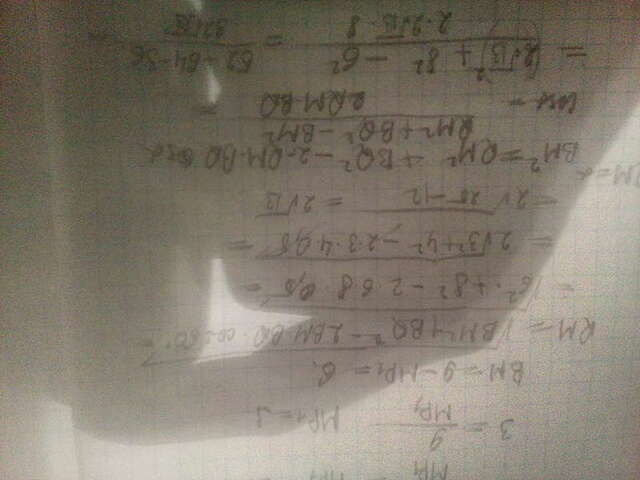 MP₁
3 = 9/MP₁ MP₁ = 3
BM = 9 - MP₁ = 6
QM = √(BM² + BQ² - 2BM·BQ·cos60°) =
= √(6² + 8² - 2·6·8·0,5) =
= 2√(3² + 4² - 2·3·4·0,5) =
= 2√(25 - 12) = 2√13
BM² = QM² + BQ² - 2·QM·BQ cosα
cosα = (QM² + BQ² - BM²)/(2QM·BQ) =
= ((2√13)² + 8² - 6²)/(2·2√13·8) = (52 + 64 - 36)/(32√13) =